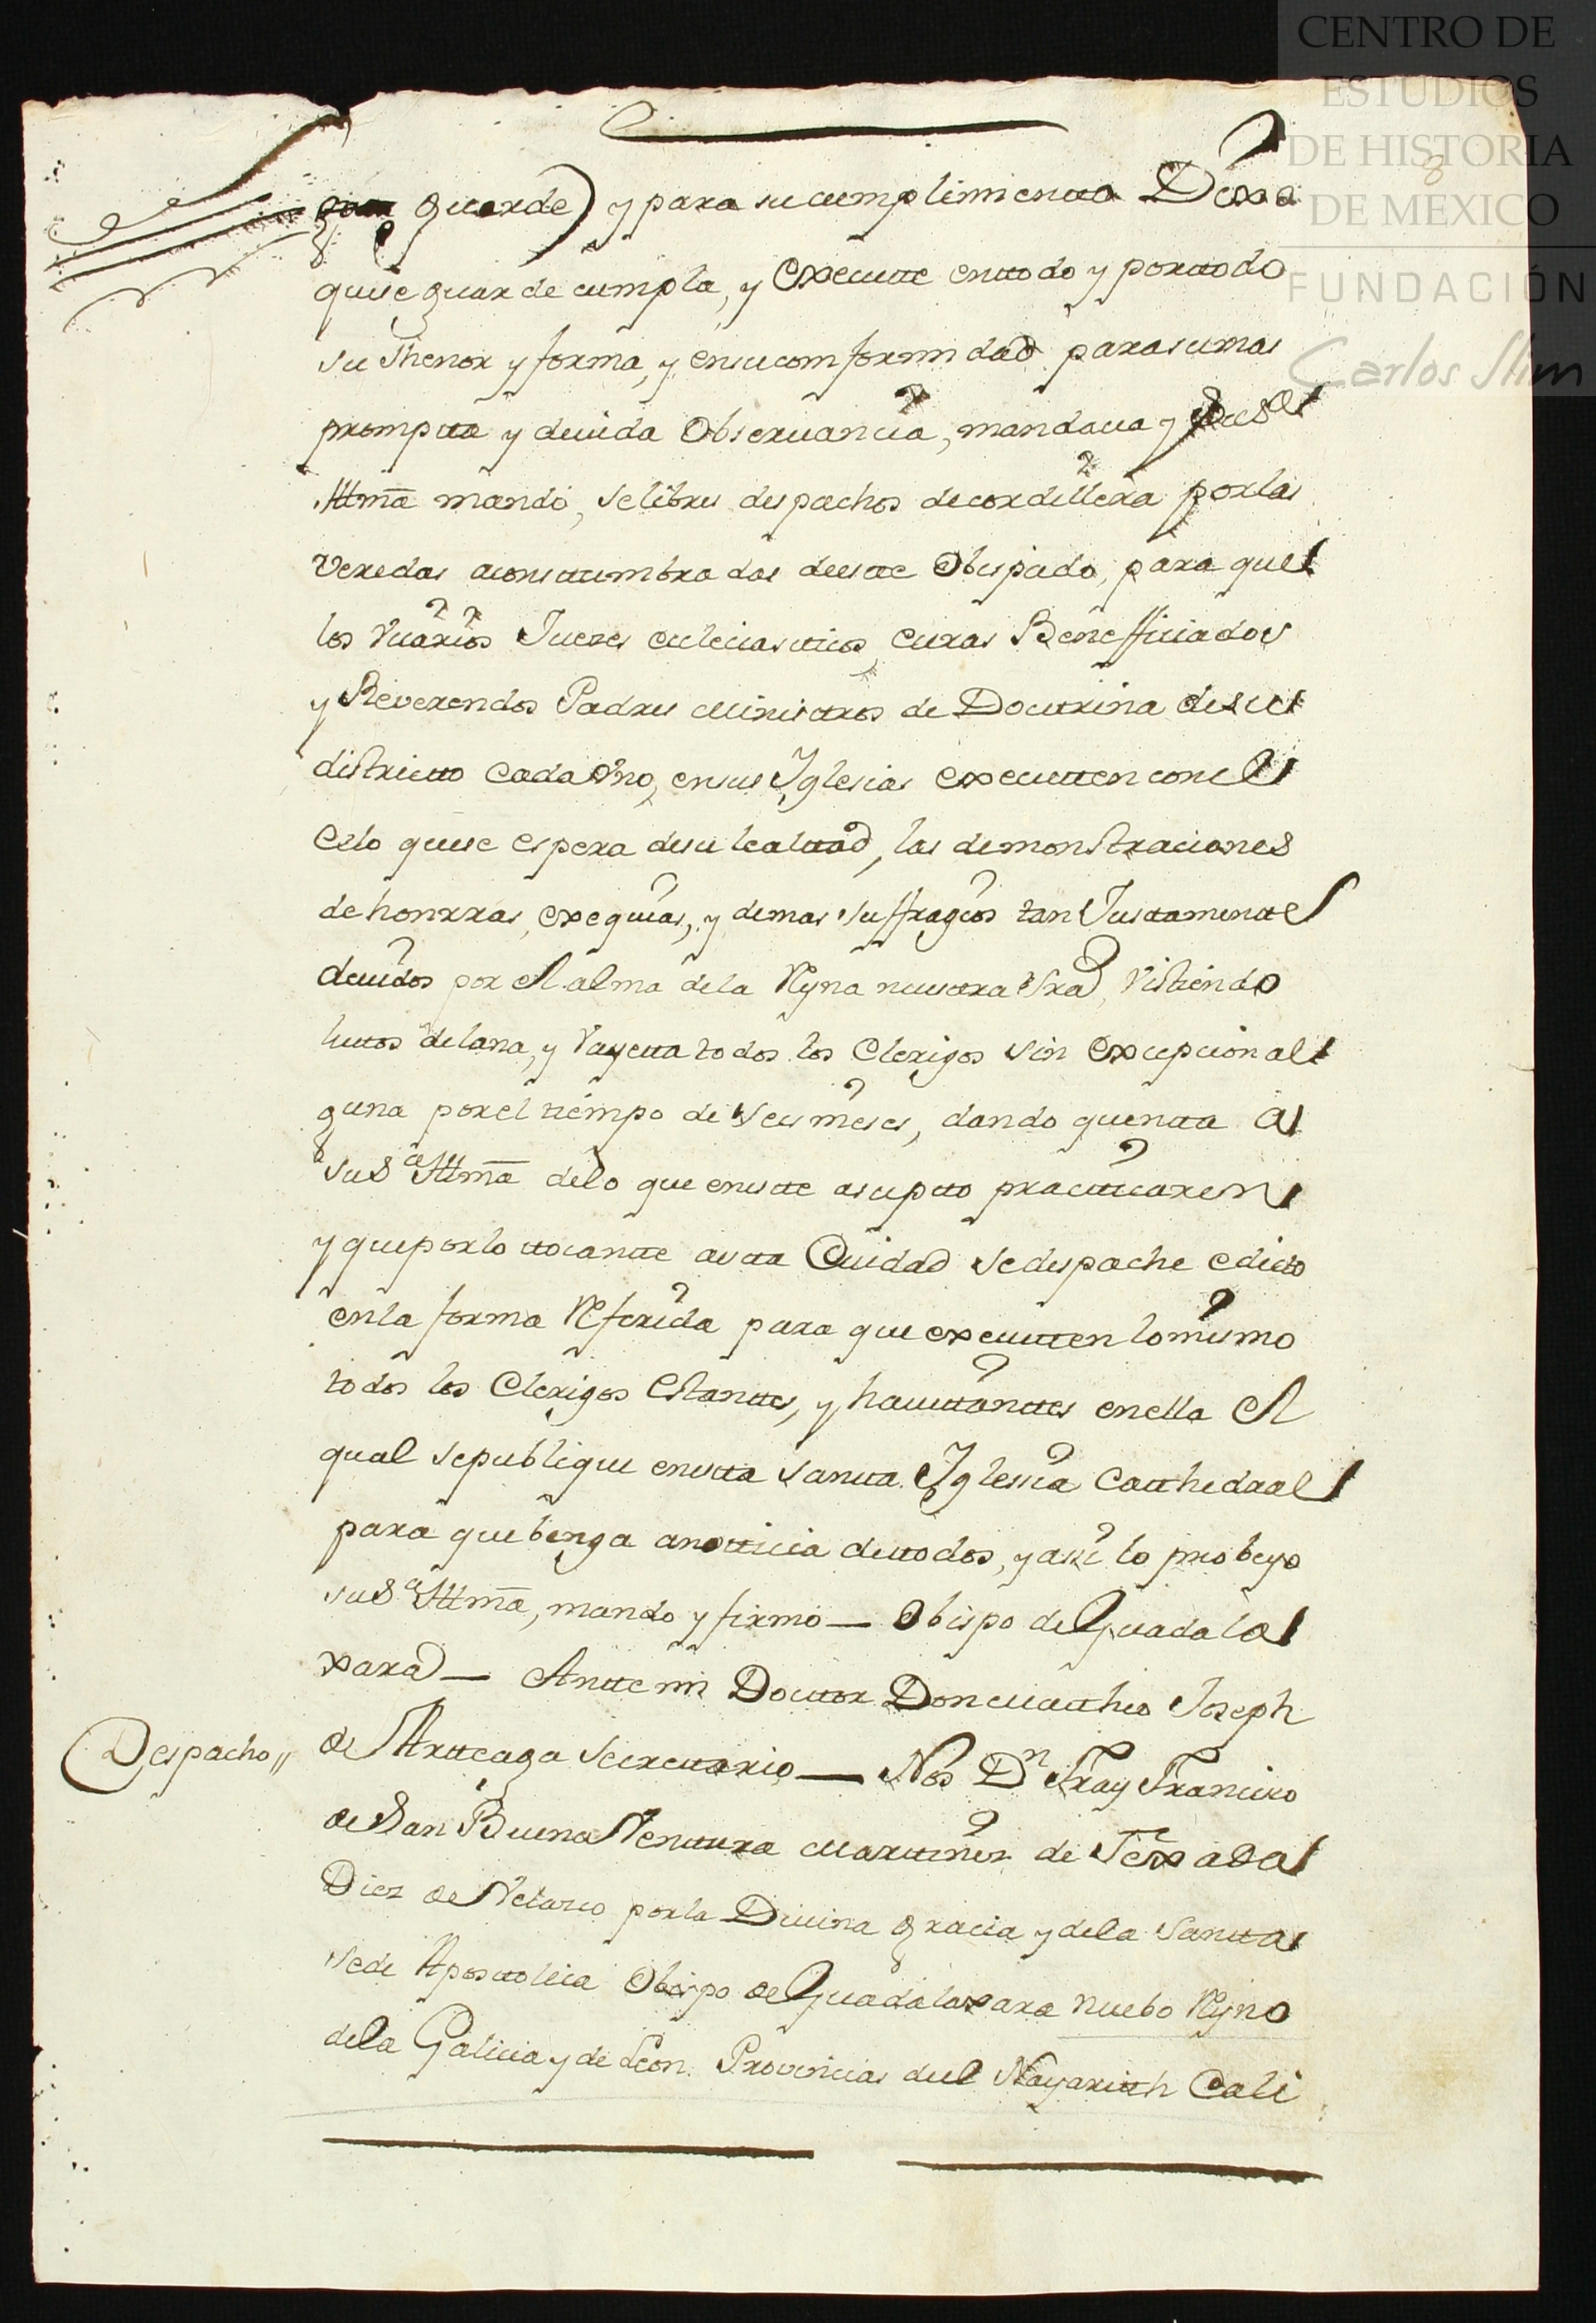 CENTRO DE
ESTUDIOS
DE HISTORIA
DE MEXICO
FUNDACIÓN
Carlos Slim
8
guarde) y para su cumplimientto Dixo
que se guarde cumpla, y Executte en ttodo y por ttodo
su Thenor y forma, y en su comformidad para su mas
prompta y deuida Obseruancia, mandaua y
Illmã mandó, se libren despachos de cordillera por las
Veredas acosttumbradas de estte Obispado, para que
los Vicarios Juezes eclesiasticos, Curas Benefficiados
y Reverendos Padres Ministtros de Docttrina de su
distrietto Cada Vno, en sus Iglesias executten con el
Celo que se espera de su lealttad, las demonstraciones
de honrras, exequias, y demas suffragios tan Justtamentte
deuidos por el alma de la Reyna nuesttra Srã, Vistiendo
luttos de lana, y Vayetta todos los Clerigos sin Excepcion al
guna por el tiempo de Seis meses, dando quentta à
su Sª Illmã de lo que en estte asuptto practticaren
y que por lo ttocantte a estta Ciudad se despache edicto
en la forma Referida para que executten lo mismo
todos los Clerigos Estanttes, y hauittanttes en ella el
qual se publique en estta Santta Iglesia Catthedral
para que benga a notticia de ttodos, y assi lo probeyo
su Sª Illmã, mando y firmó — Obispo de Guadala
xara — Antte mi Docttor Don Mattheo Joseph
Despacho,, de Artteaga Secrettario — Nos Dⁿ Fray Francisco
de San Buena Venttura Marttinez de Texada
Diez de Velasco por la Diuina gracia y de la Santta
Sede Aposttolica Obispo de Guadalaxara nuebo Reyno
de la Galicia y de Leon Provincias del Nayaritth Cali